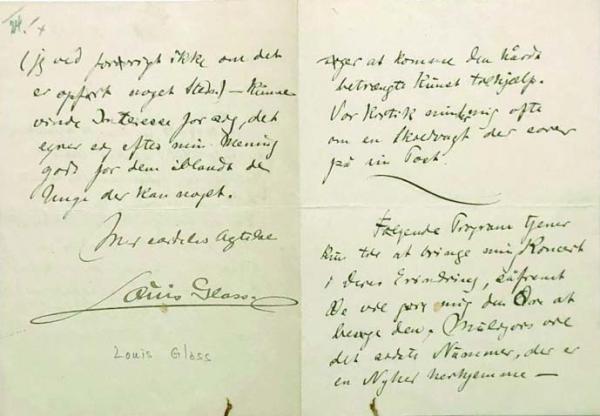 (jeg ved forøvrigt ikke om det
er opført noget Sted.) — Kunne
vinde Interesse for sig, det
egner sig efter min Mening
godt for dem iblandt de
Unge der kan noget.
Med særdeles Agtelse
Louis Glass
Louis Glass
søger at komme den hårdt
betrængte Kunst til hjælp.
Vor Kritik minder mig ofte
om en Skildvagt der sover
på sin Post.
Følgende Program tjener
kun til at bringe min Koncert
i Deres Erindring, såfremt
De vil gøre mig den Ære at
besøge den. Muligvis vil
det andet Nummer, der er
en Nyhed herhjemme —